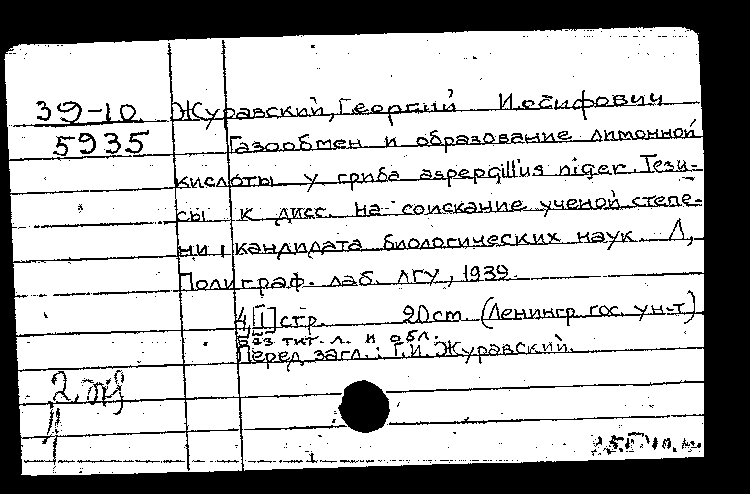 39-10
5935
Журавский, Георгий Иосифович
Газообмен и образование лимонной
кислоты у гриба aspergillus niger. Тези-
сы к дисс. на соискание ученой степе-
ни кандидата биологических наук. Л,
Полиграф. лаб. ЛГУ, 1939.
4,[1] стр. 20 ст. (Ленингр. гос. ун-т)
Без тит. л. и обл.
Перед загл.: Г.И. Журавский.